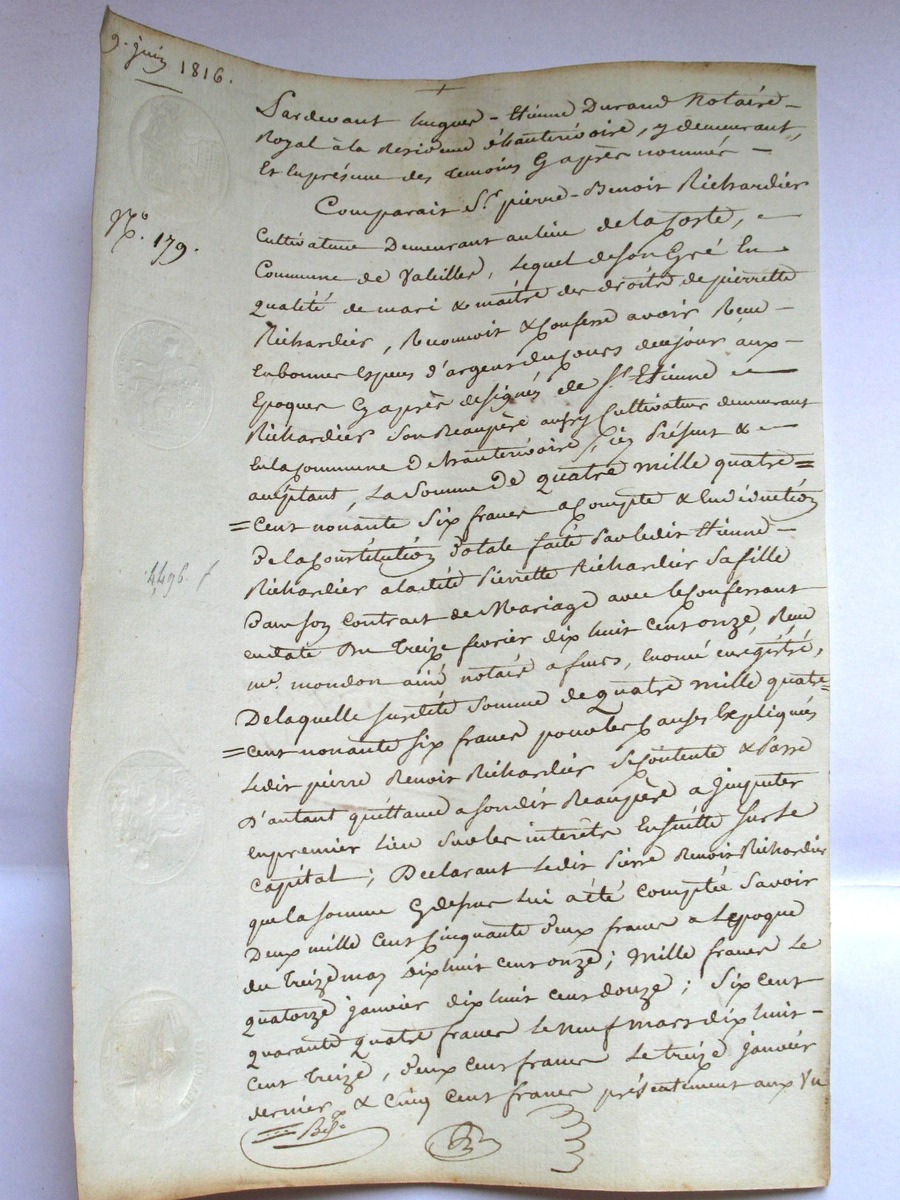 9. juin 1816.
Pardevant hugues-Etienne Durand Notaire-
Royal à la Residence d'hauterivoire, y demeurant,
Et En présence des temoins Cy après nommés -
Comparait Sr. pierre-Benoit Richardier
No. 179.
Cultivateur Demeurant au lieu de la Coste,
Commune de Valeilles, Lequel de Son Gré En
qualité de mari & maitre des droits de pierrette
Richardier, Reconnoit & Confesse avoir Reçu -
En bonnes Especes d'argent du Cours de ce jour aux-
Epoques Cy après designés de Sr. Etienne
Richardier Son Beaupère aussy Cultivateur demeurant
En la Commune D'hauterivoire, icy Présent &
acceptant, La Somme De quatre mille quatre=
=Cent nonante Six francs acompte & En déduction
De la Constitution Dotale faite Par Ledit Etienne-
4,496. f
Richardier a la dite Pierrette Richardier Sa fille
Dans Son Contract de Mariage avec le Confessant
en date Du treize fevrier dix huit cent onze, Reçu
me. mondon ainé notaire a feurs, En ené enregistré,
De laquelle Susdite Somme de quatre mille quatre=
=Cent nonante Six francs pour les Causes Expliqués
Ledit pierre Benoit Richardier Se Contente & Passe
D'autant quittance a Son dit Beaupère a Jmputer
en premier Lieu Sur les interêts Ensuitte Sur Le
Capital; Declarant Ledit Pierre Benoit Richardier
que la Somme Cy dessus Lui a été Comptée Savoir
Deux mille Cent Cinquante Deux francs a L'epoque
du treize may Dix huit cent onze; Mille francs Le
quatorze janvier dix huit cent douze; Six Cent
quarante quatre francs Le neuf mars dix huit-
Cent treize, Deux Cent francs Le treize janvier
dernier & Cinq Cent francs présentement aux Vu